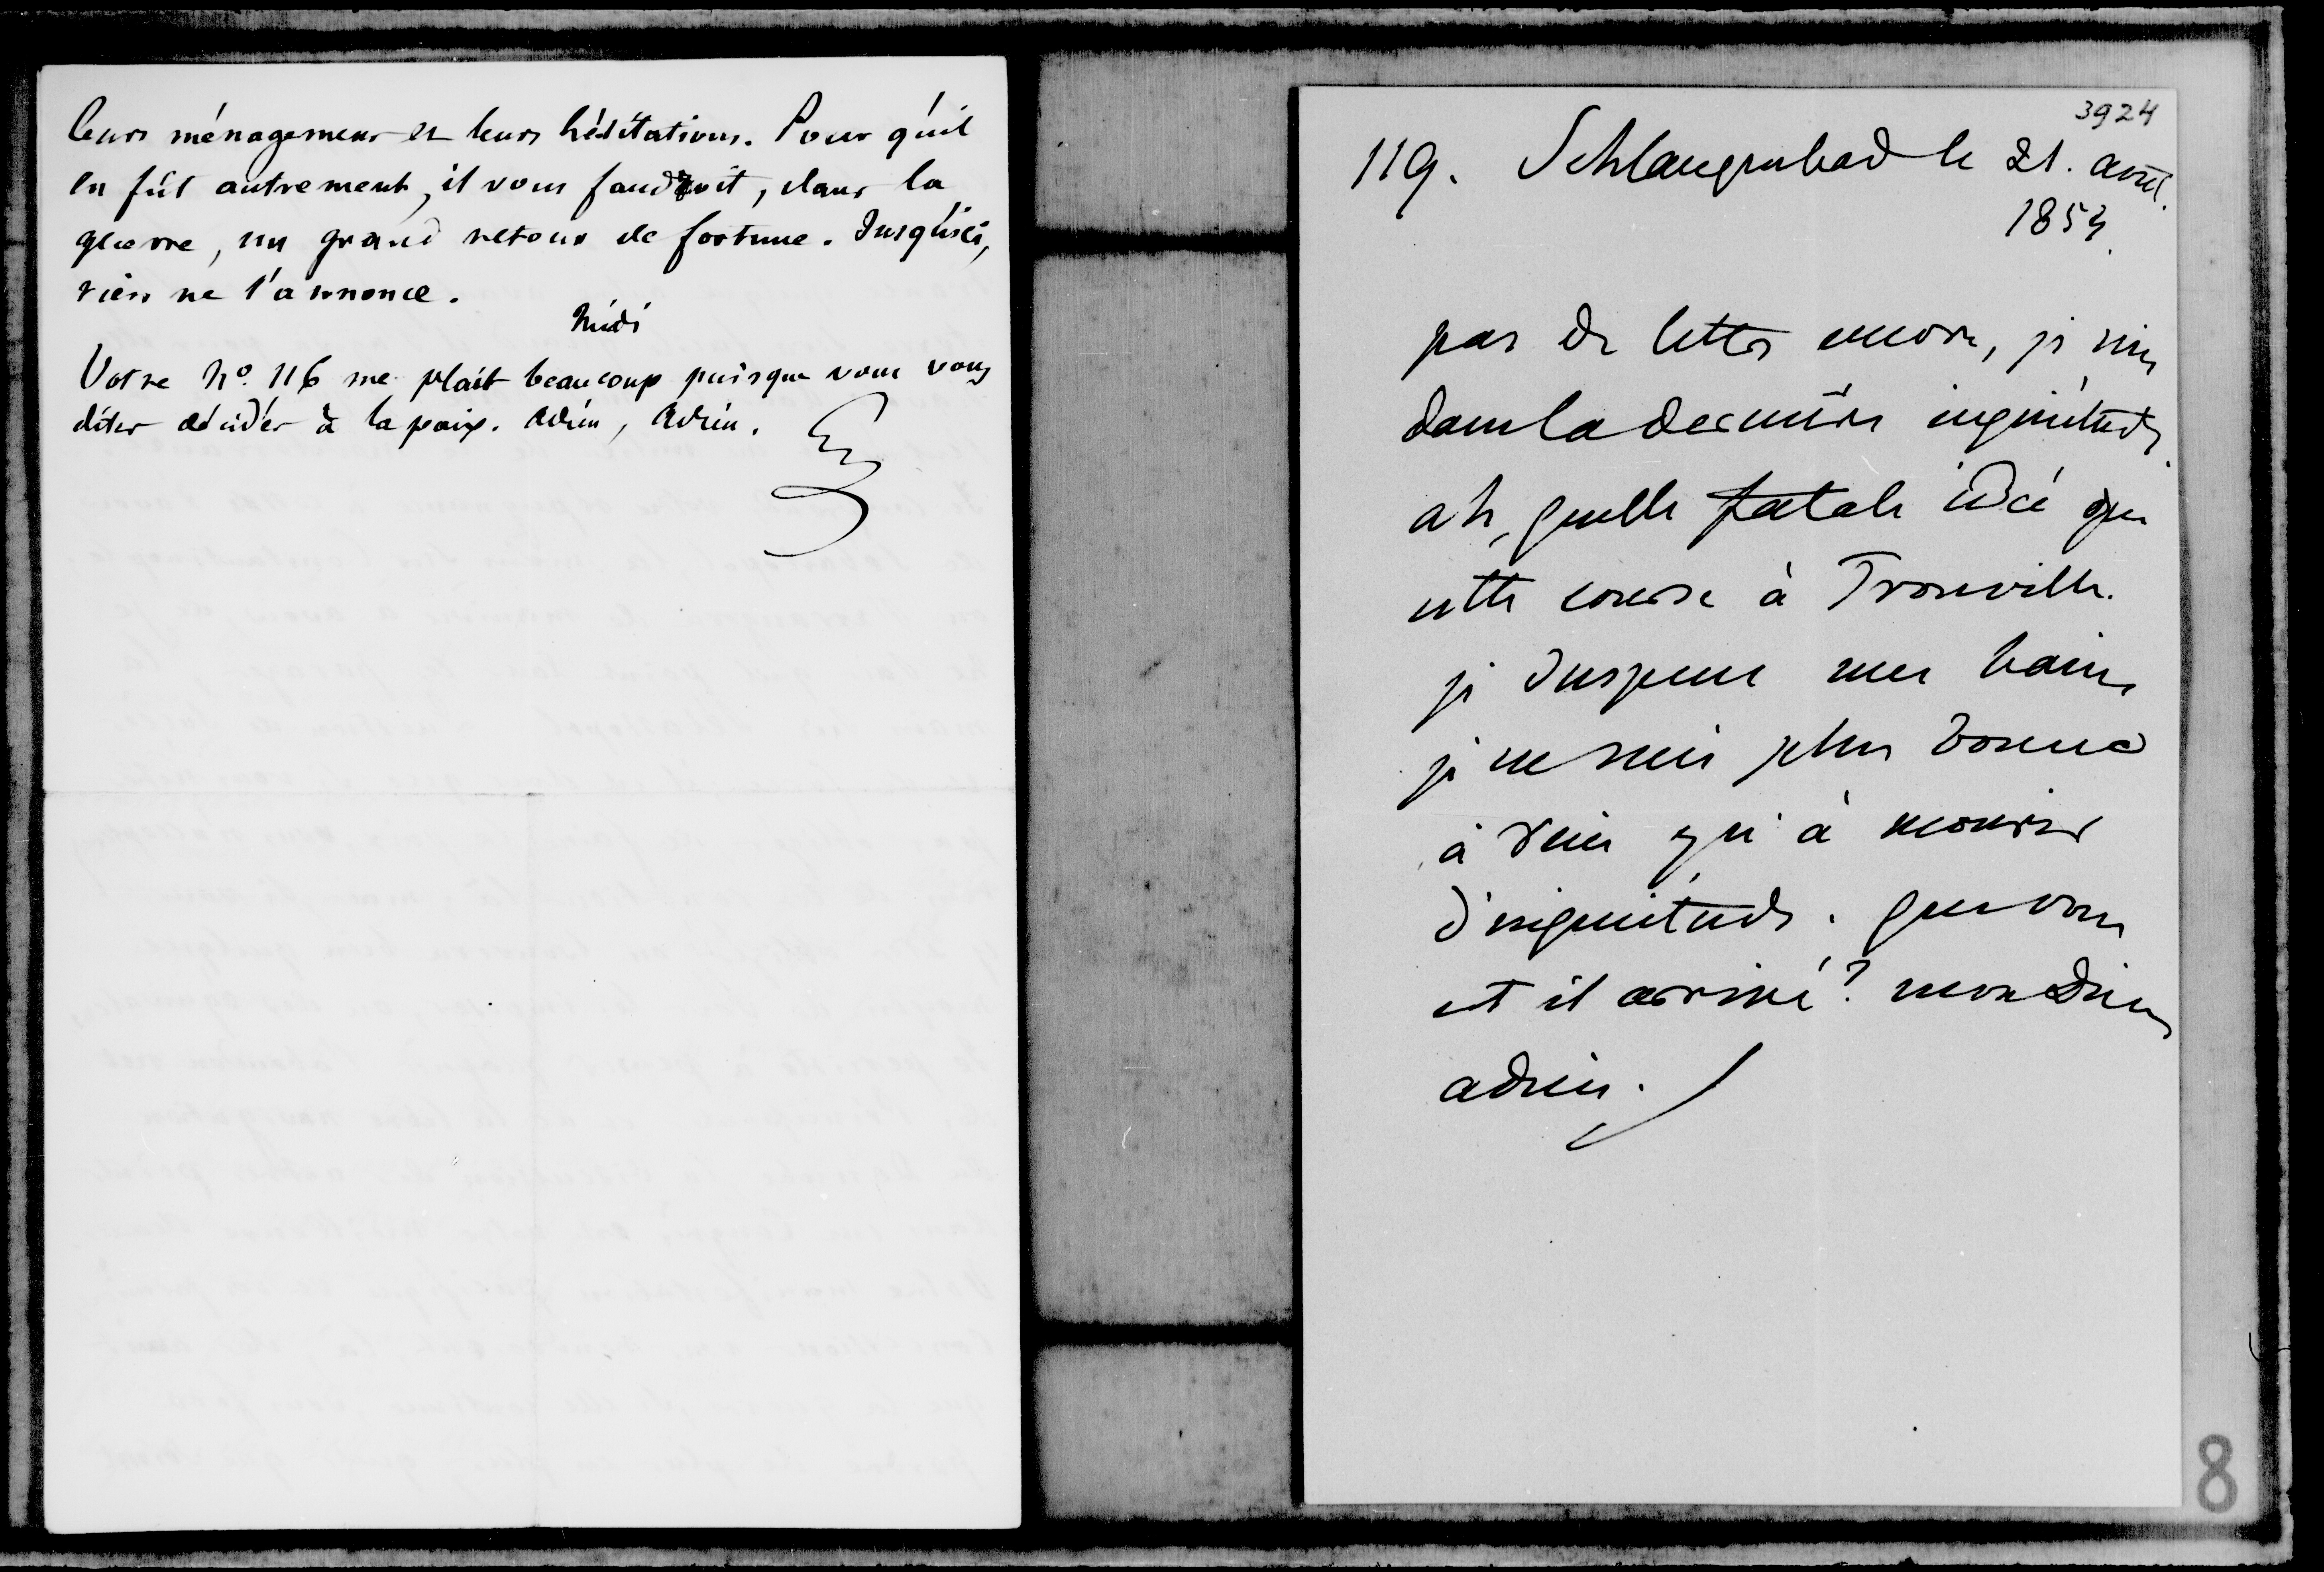 leurs ménagemens et leurs hésitations. Pour qu'il
en fût autrement, il vous faudroit, dans la
guerre, un grand retour de fortune. Jusqu'ici,
rien ne l'annonce.
Midi
Votre No. 116 me plaît beaucoup puisque vous vous
dites décidés à la paix. Adieu, Adieu.
3924
119. Schlangenbad le 21. août
1854.
pas de lettres encore, je suis
dans la dernière inquiétude.
ah, quelle fatale idée que
cette course à Trouville.
je suspens mes bains
je ne suis plus bonne
à rien qu'à mourir
d'inquiétude. que vous
est il arrivé? mon dieu
adieu.
8